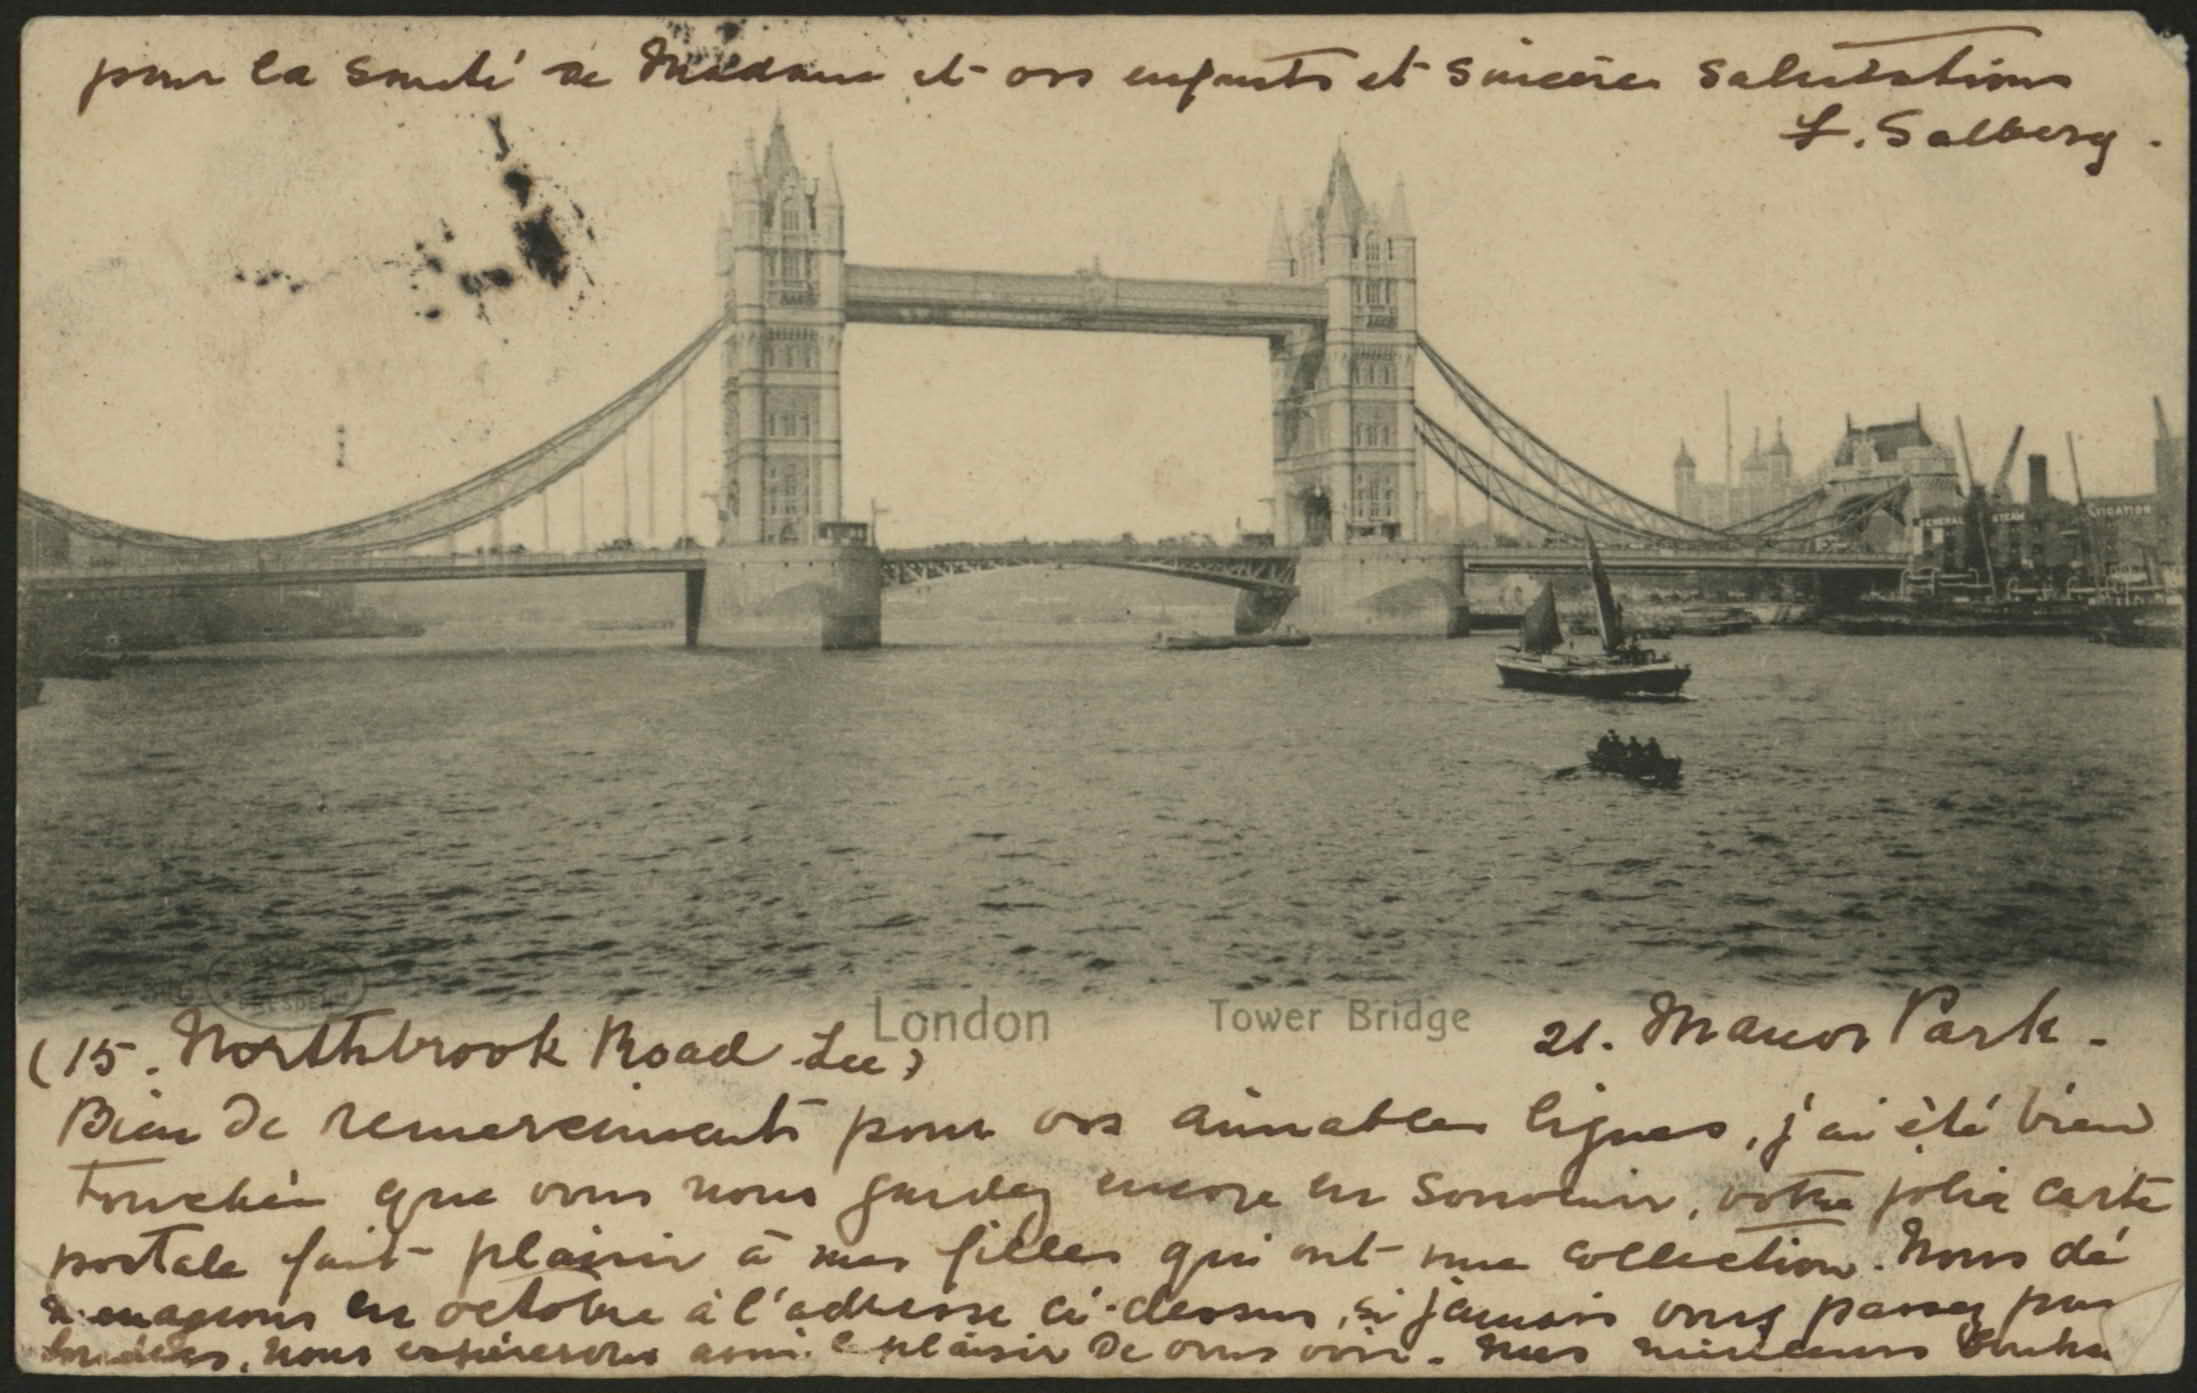 pour la santé de Madame et vos enfants et sincères salutations
L. Salberg.
GENERAL STEAM
London Tower Bridge
(15. Northbrook Road Lee) 21. Manor Park.
Bien de remerciements pour vos aimables lignes, j'ai été bien
touchée que vous nous gardez encore en souvenir, votre jolie carte
postale fait plaisir à mes filles qui ont une collection. Nous dé
menageons en octobre à l'adresse ci-dessus, si jamais vous passez par
Londres, nous espérerons avoir le plaisir de vous voir. Mes meilleurs